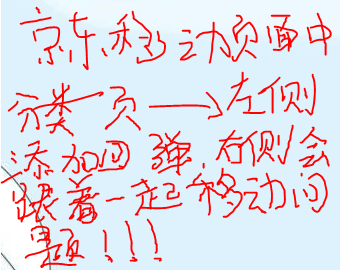 京东移动页面中
分类页→左侧
添加回弹,右侧会
跟着一起移动问
题!!!